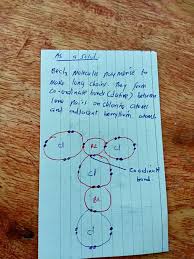 As a solid
BeCl2 molecules polymerise to
make long chains. They form
co-ordinate bonds (dative) between
lone pairs on chlorine atoms
and adjacent beryllium atoms
Cl Be Cl
Cl
Co-ordinate
bond
Be
Cl